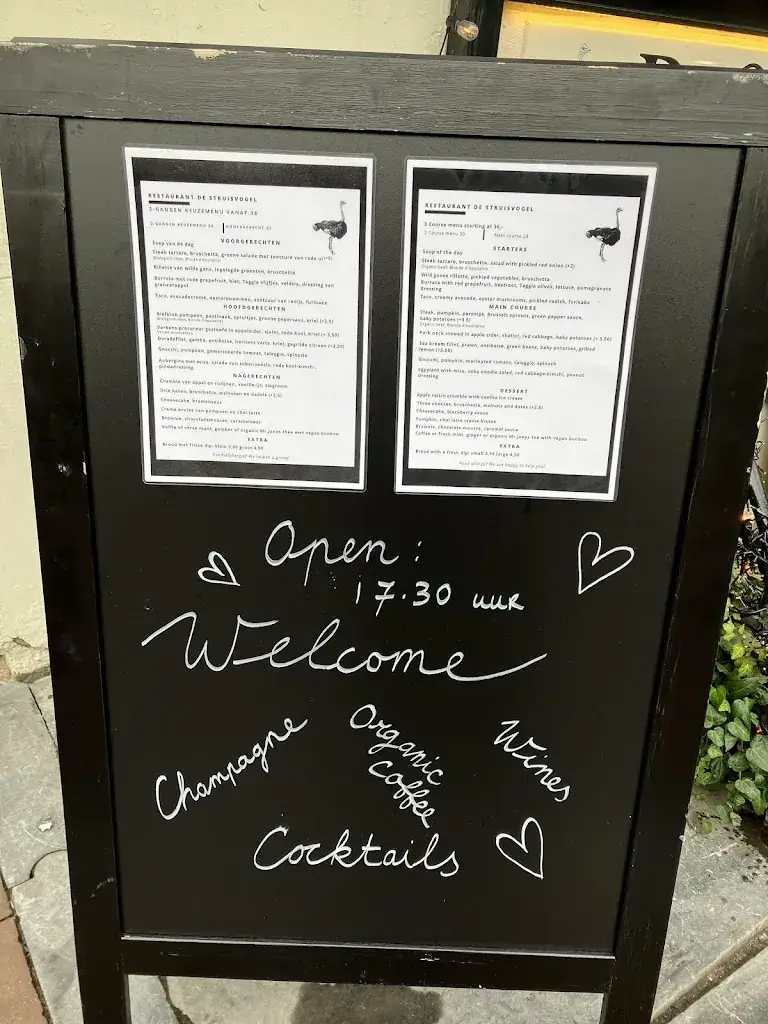 RESTAURANT DE STRUISVOGEL
3-GANGEN KEUZEMENU VANAF 36
2-GANGEN KEUZEMENU 30 HOOFDGERECHT 23
VOORGERECHTEN
Soep van de dag
Steak tartare, bruschetta, groene salade met zootzure van rode ui(+2)
Rillette van wilde gans, ingelegde groenten, bruschetta
Burrata met rode grapefruit, biet, Taggia olijfjes, veldsla, dressing van
granaatappel
Taco, avocadocreme, oesterzwammen, zoetzuur van radijs, furikake
HOOFDGERECHTEN
Biefstuk, pompoen, pastinaak, spruitjes, groene pepersaus, kriel (+3,5)
Varkens procureur gestoofd in appelcider, sjalot, rode kool, kriel (+ 3,50)
Doradefilet, gamba, antiboise, haricots verts, kriel, gegrilde citroen (+3,50)
Gnocchi, pompoen, gemarineerde tomaat, taleggio, spinazie
Aubergine met miso, salade van sobanoedels, rode kool-kimchi,
pindadressing
NAGERECHTEN
Crumble van appel en rozijnen, vanille-ijs, slagroom
Drie kazen, bruschetta, walnoten en dadels (+2,5)
Cheesecake, bramensaus
Creme brulee van pompoen en chai latte
Brownie, chocolademousse, caramelsaus
Koffie of verse munt, gember of organic Mr Jones thee met vegan bonbon
EXTRA
Brood met frisse dip: klein 3,50 groot 4,50
RESTAURANT DE STRUISVOGEL
3 Course menu starting at 36,-
2 Course menu 30 Main course 23
STARTERS
Soup of the day
Steak tartare, bruschetta, salad with pickled red onion (+2)
Organic beef, Blonde d'Aquitaine
Wild goose rillette, pickled vegetables, bruschetta
Burrata with red grapefruit, beetroot, Taggia olives, lettuce, pomegranate
dressing
Taco, creamy avocado, oyster mushrooms, pickled radish, furikake
MAIN COURSE
Steak, pumpkin, parsnips, Brussels sprouts, green pepper sauce,
baby potatoes (+3,5)
Organic beef, Blonde d'Aquitaine
Pork neck stewed in apple cider, shallot, red cabbage, baby potatoes (+ 3,50)
Sea bream fillet, prawn, antiboise, green beans, baby potatoes, grilled
lemon (+3,50)
Gnocchi, pumpkin, marinated tomato, taleggio, spinach
Eggplant with miso, soba noodle salad, red cabbage-kimchi, peanut
dressing
DESSERT
Apple raisin crumble with vanilla ice cream
Three cheeses, bruschetta, walnuts and dates (+2,5)
Cheesecake, blackberry sauce
Pumpkin, chai latte creme brulee
Brownie, chocolate mousse, caramel sauce
Coffee or fresh mint, ginger or organic Mr Jones tea with vegan bonbon
EXTRA
Bread with a fresh dip: small 3,50 large 4,50
Food allergy? We are happy to help you!
Open :
17.30 uur
Welcome
Champagne
Organic
Coffee
Wines
Cocktails